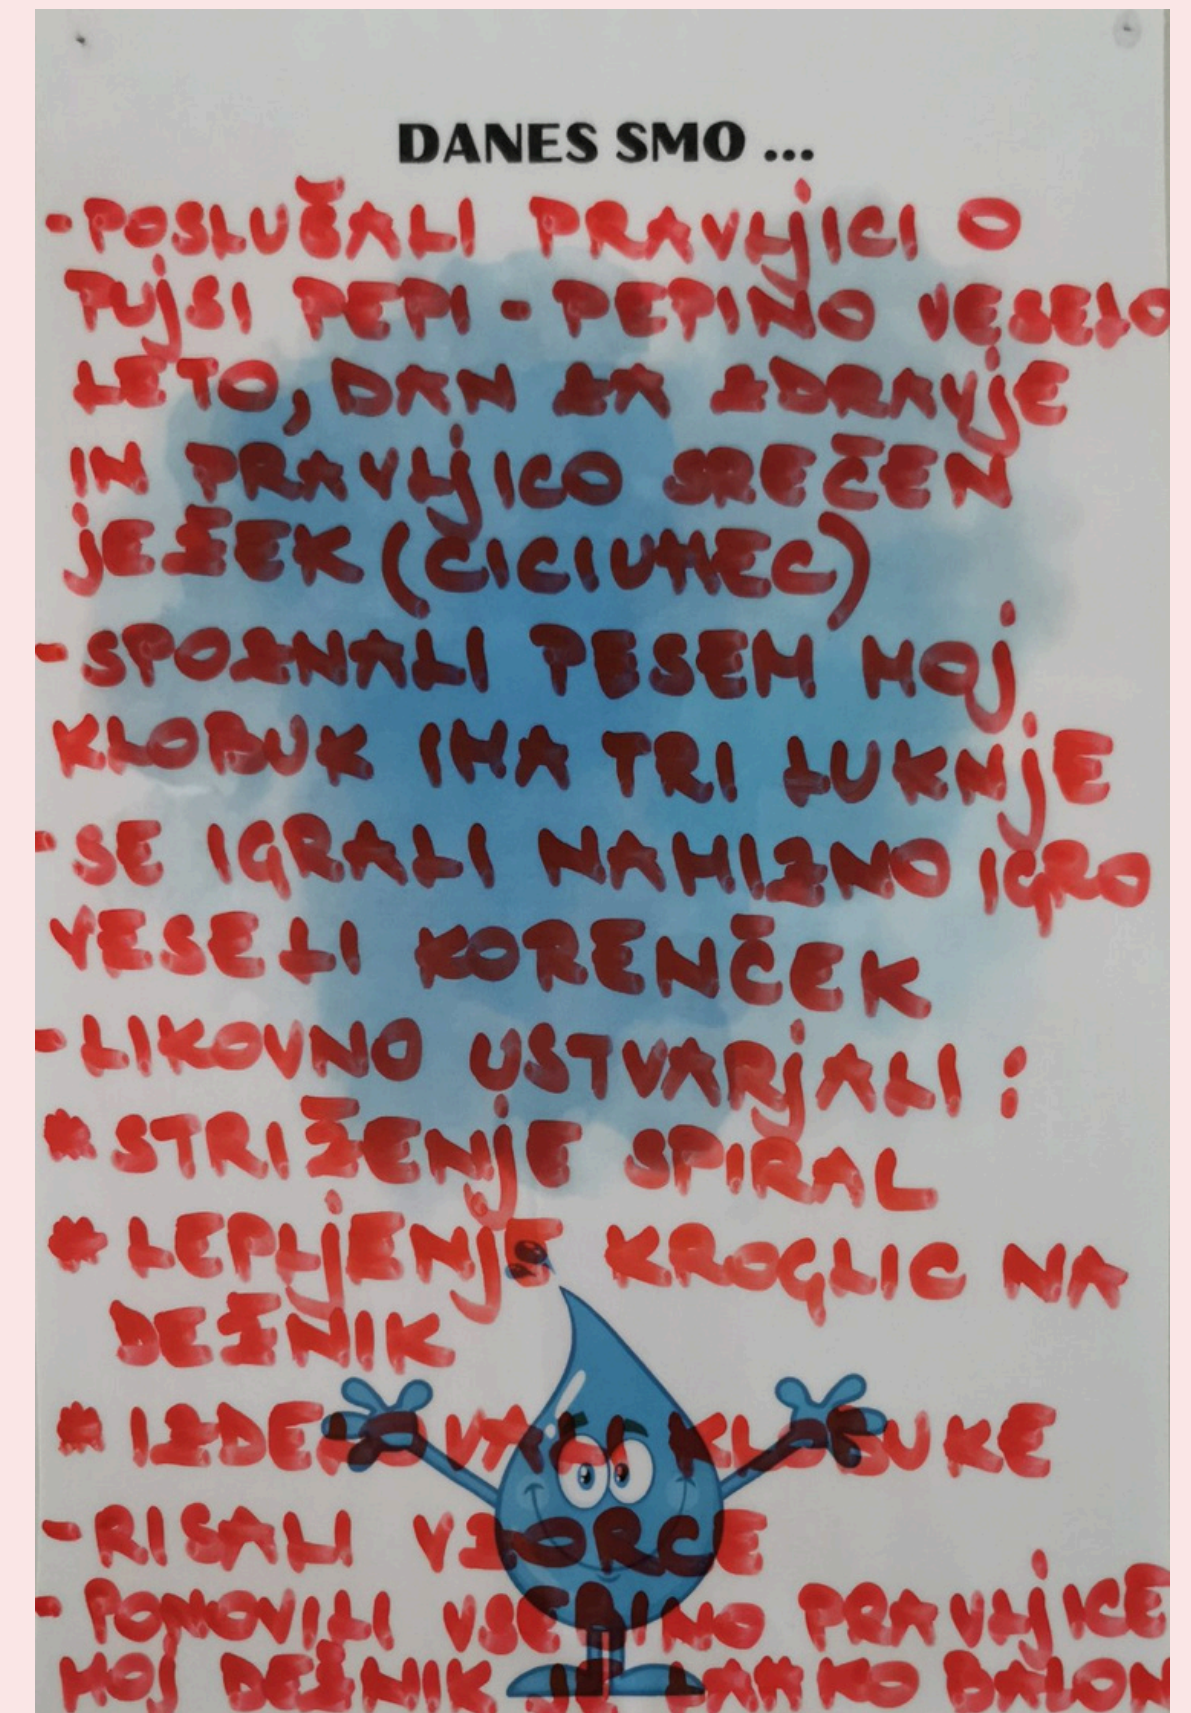 DANES SMO ...
-POSLUŠALI PRAVLJICI O
PUJSI PEPI - PEPINO VESELO
LETO, DAN ZA ZDRAVJE
IN PRAVLJICO SREČEN
JEŽEK (CICIUMEC)
-SPOZNALI PESEM MOJ
KLOBUK IMA TRI LUKNJE
-SE IGRALI NAMIZNO IGRO
VESELI KORENČEK
-LIKOVNO USTVARJALI :
* STRIŽENJE SPIRAL
* LEPLJENJE KROGLIC NA
DEŽNIK
* IZDELOVALI KLOBUKE
-RISALI VZORCE
- PONOVILI VSEBINO PRAVLJICE
MOJ DEŽNIK JE LAHKO BALON